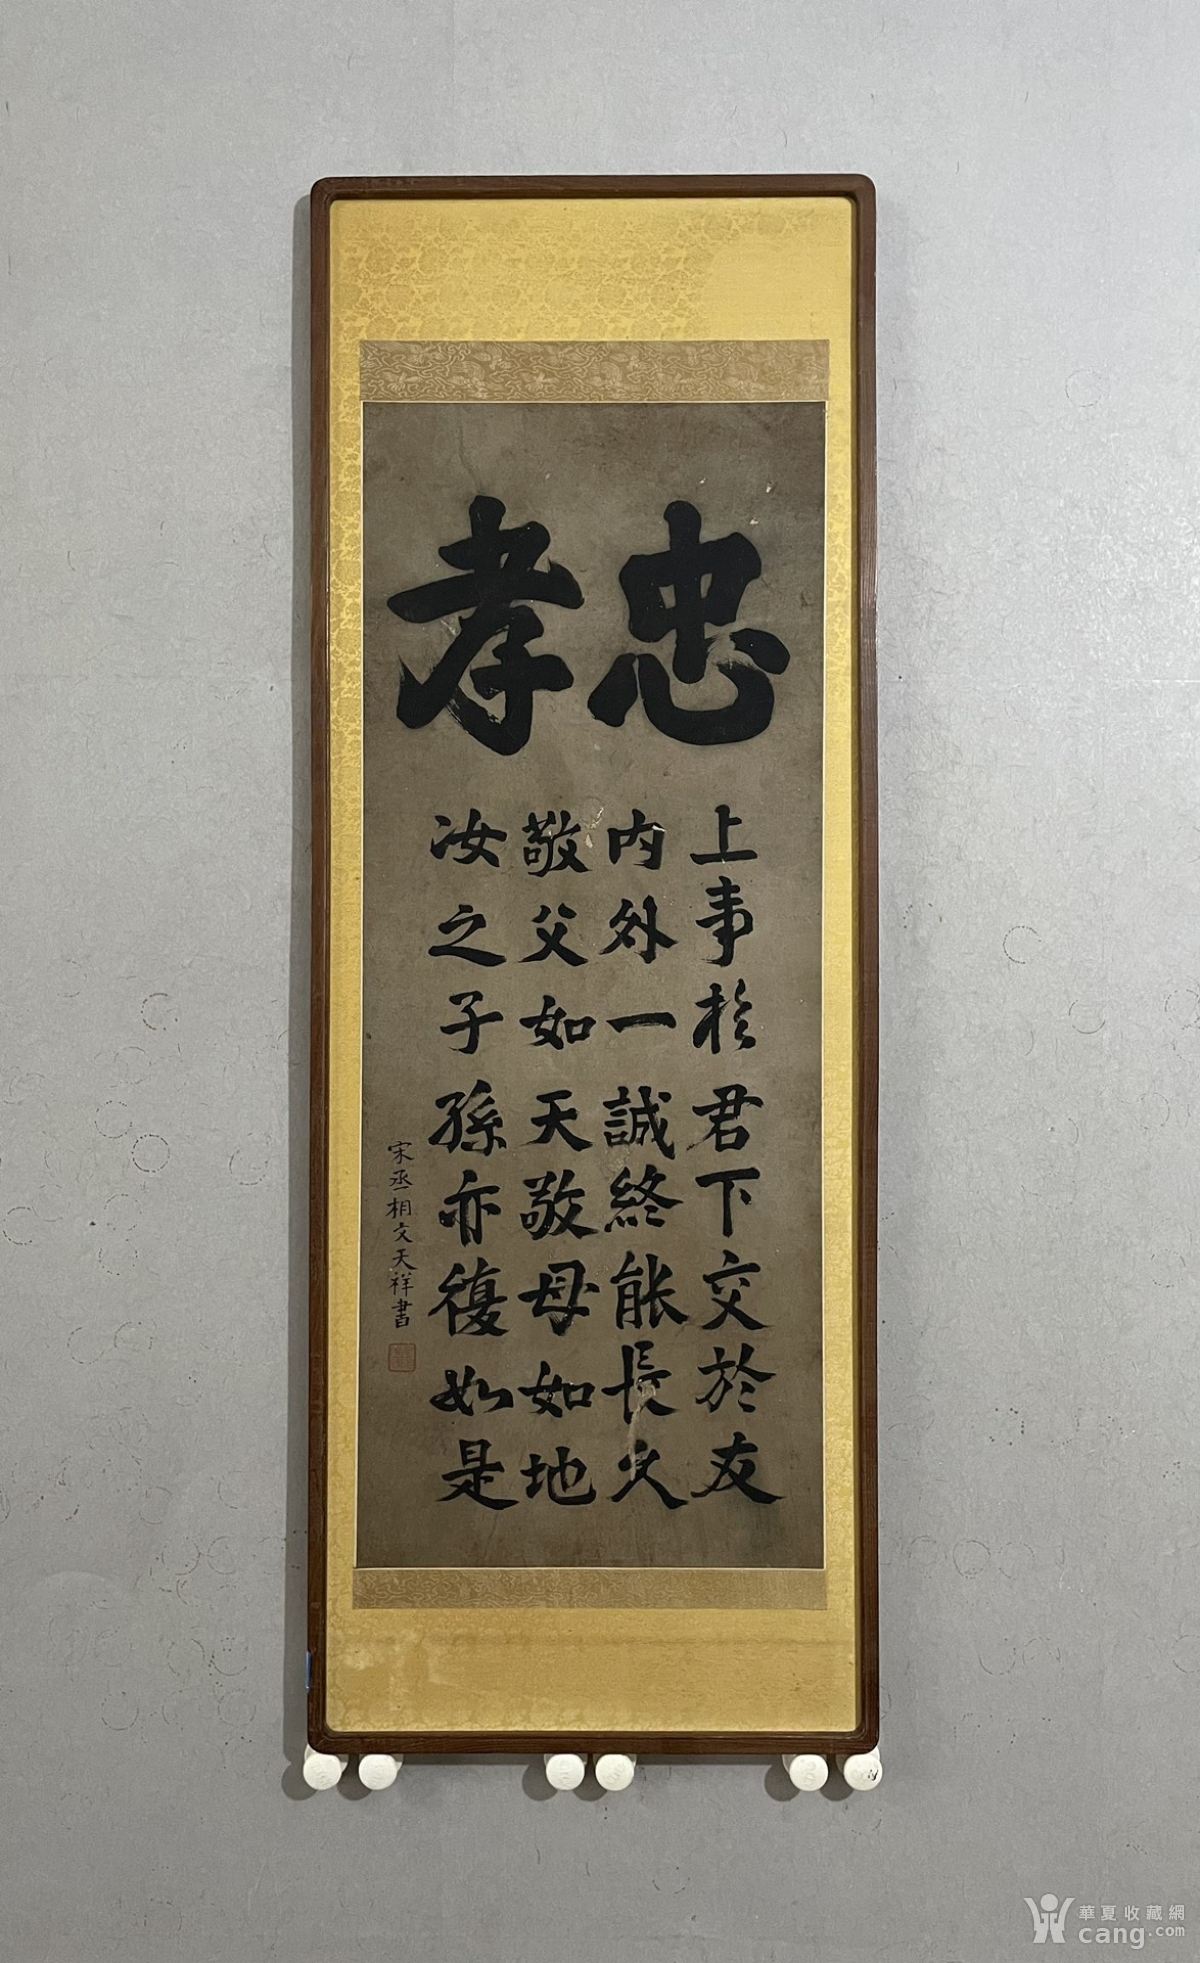 忠孝
上事於君下交於友
内外一誠終能長久
敬父如天敬母如地
汝之子孫亦復如是
宋丞相文天祥書
華夏收藏網
cang.com